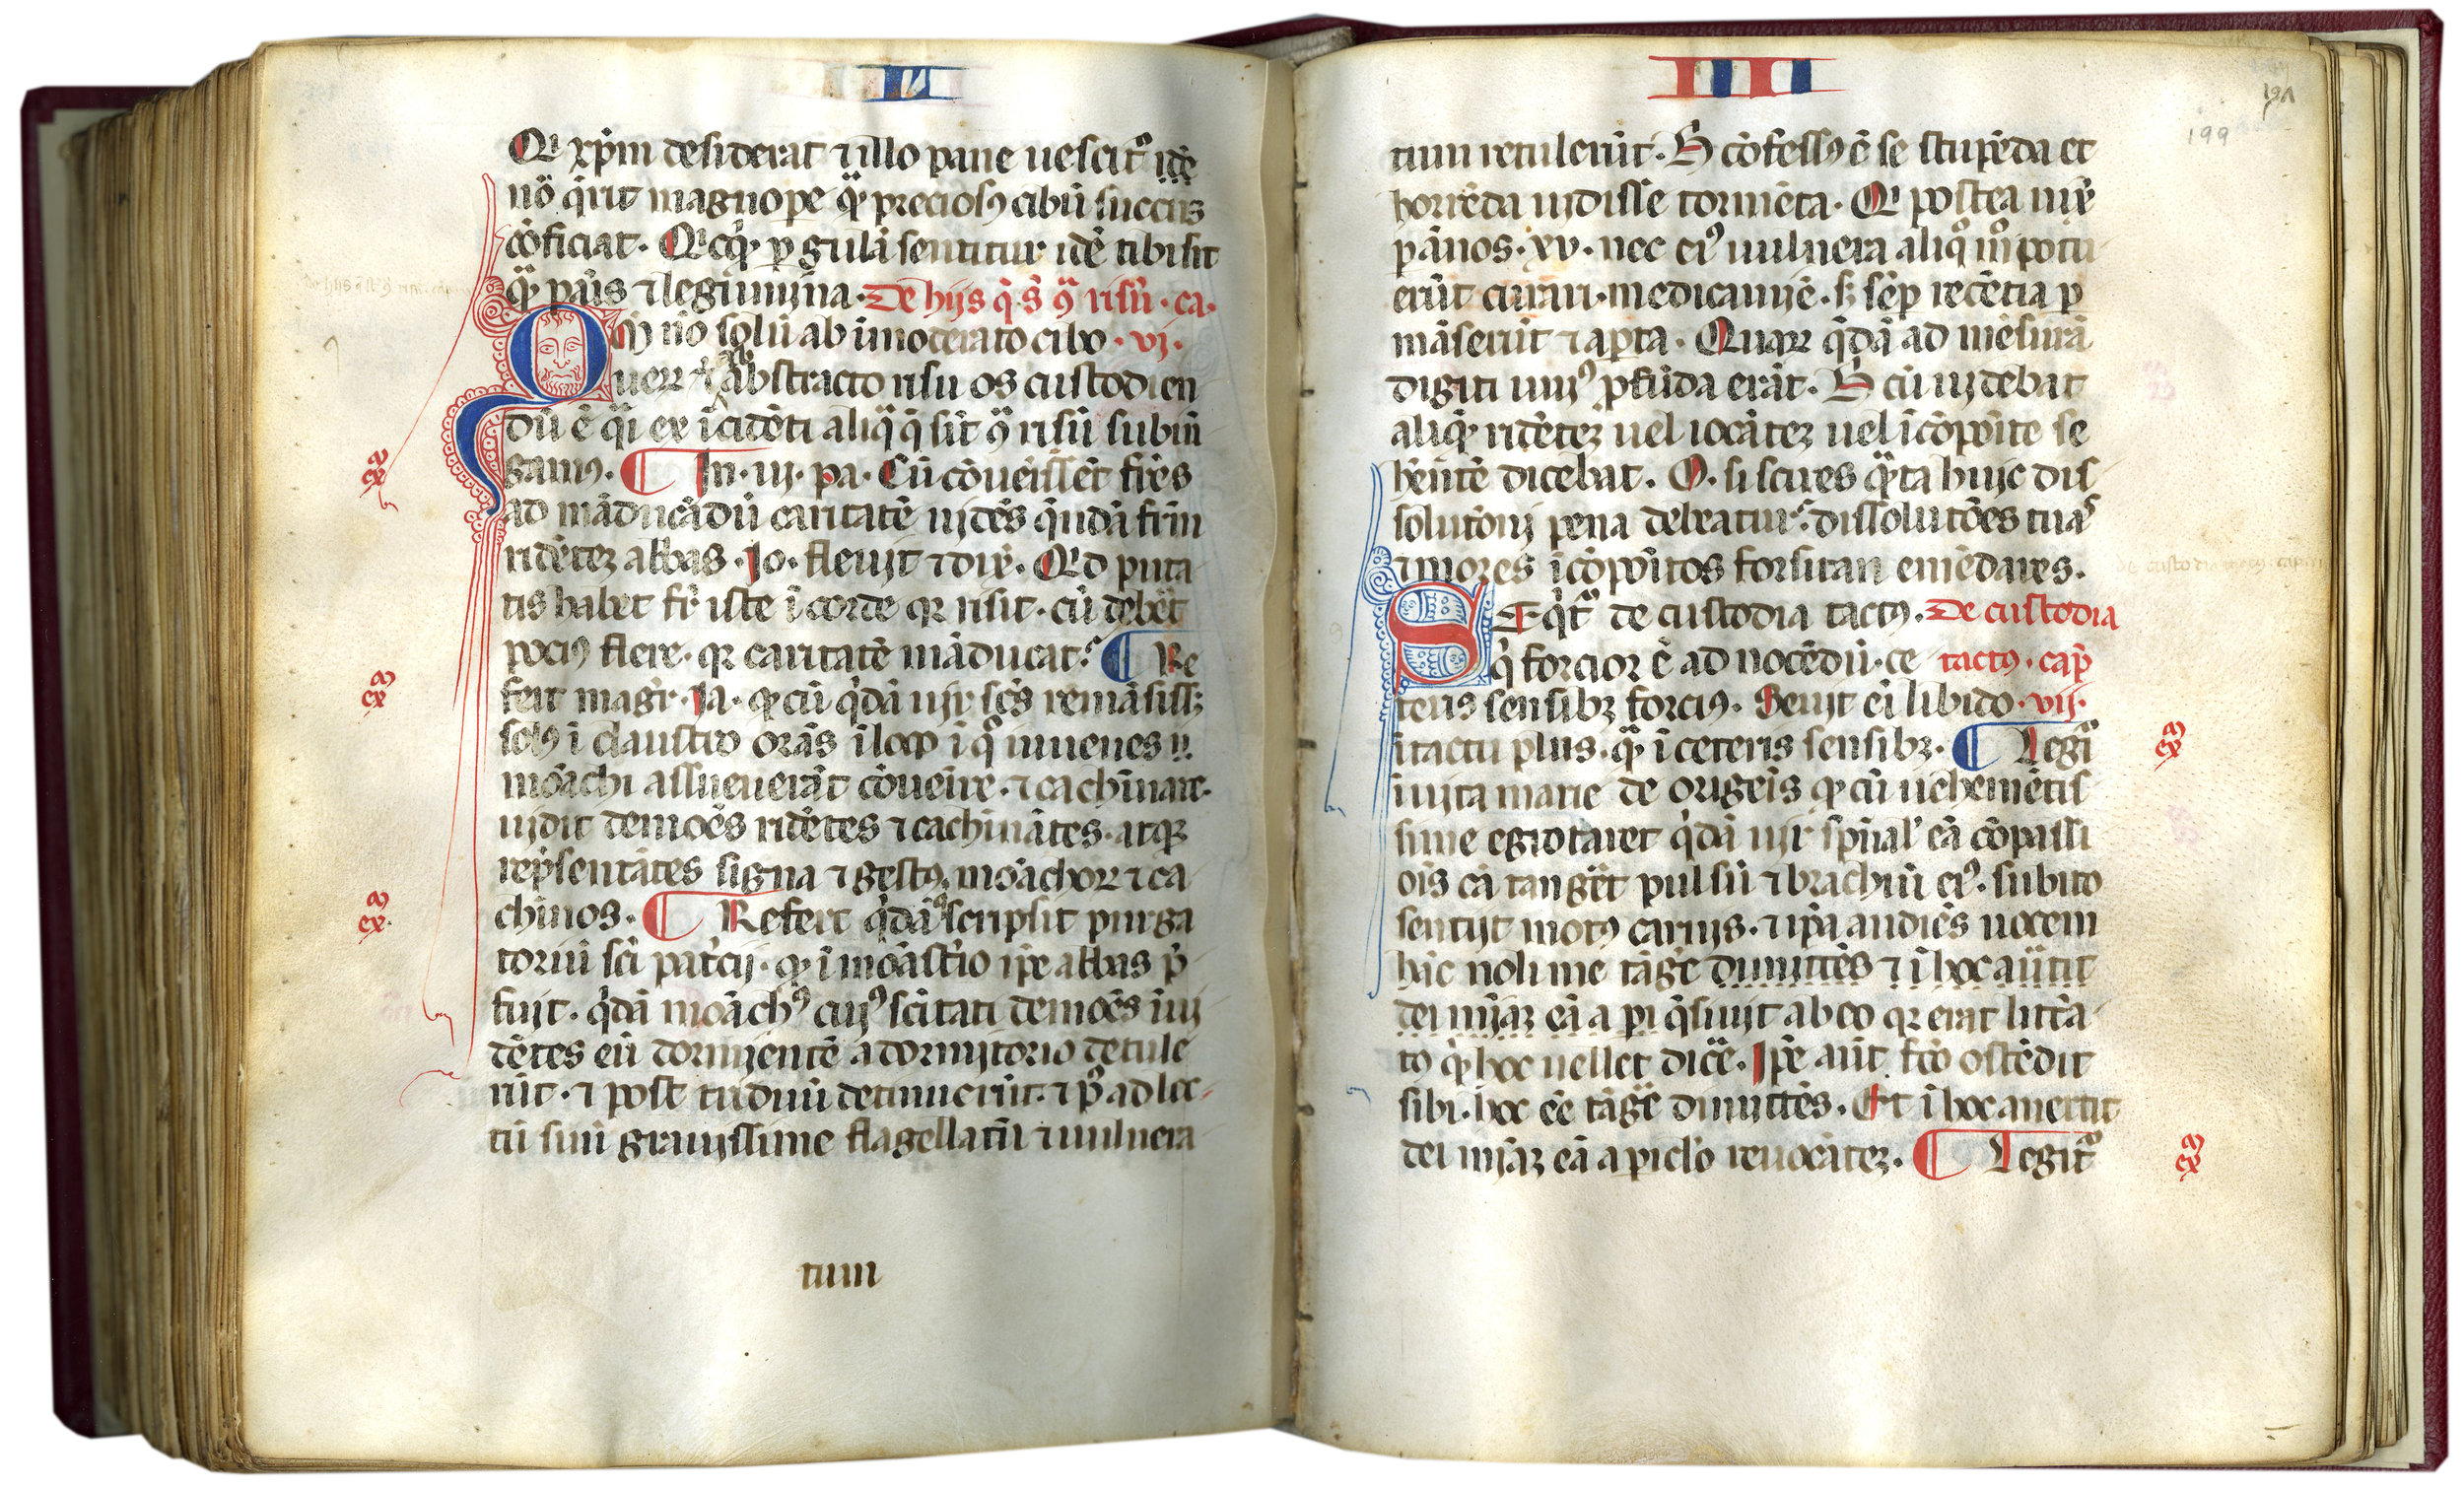 L
Qi xp̄m desiderat ⁊ illo pane uescit᷑ idē
nō q̇rit magnope qͣ preciosꝯ cibū succus
cōficiat. Qicq̇ p gulā sentitur idē tibi sit
qͣ panis ⁊ legumina. De hijs q̇ s̄t ꝯͣ risū. ca.
Qm̄ nō solū ab īmoderato cibo. vi.
uerꝫ ⁊ ab abstracto risu os custodien
dū ē qͣi ex īcidēti aliqͣ q̇ sūt ꝯͣ risū subiū
gamꝯ. ¶ In. iij. pa. Cū cōuenissēt fr̄es
ex̄ᵃ
ad māducādū caritatē uidēs quēdā fr̄m
ridētez abbas. Jo. fleuit ⁊ dix̄. Qid puta
tis habet fr̄ iste ī corde qr risit. cū debēt
pociꝯ flere. qr caritatē māducat. ¶ Re
fert magr̄. Ja. qͥ cū q̇dā uir scs̄ remāsiss;
ex̄ᵃ
solꝯ ī claustro orās ī loco ī qͦ iuuenes
mōachi assueuerāt cōuenire. ⁊ cachinare.
uidit demōēs ridētes ⁊ cachinātes. atqꝫ
rep̄sentātes signa ⁊ gestꝯ mōachoꝝ ⁊ ca
chinos. ¶ Refert q̇dā qͥ scripsit purga
ex̄ᵃ.
toriū sci pat̄cij. qͥ ī mōast̄io ip̄e abbas p̄
fuit. q̇dā mōachꝯ cuiꝯ scītati demōēs īui
dētes eū dormientē a dormitorio detule
rūt. ⁊ post triduū detinuerūt. ⁊ pꝰ ad lec
tū suū grauissime flagellatū ⁊ uulnera
tum
IIII
191
199
tum retulerūt. H̄ cōfessꝯ ē se stupēda et
horrēda uidisse tormēta. Qi postea uix̄
p ānos. xv. nec eiꝯ uulnera aliqͦ mͦ potu
erūt curari. medicamīe. sꝫ sēp recētia p
māserūt ⁊ apta. Quaꝝ q̇dā ad mēsurā
digiti uniꝯ pfūda erāt. H̄ cū uidebat
aliqͣ ridētez uel iocātez uel īcōpoīte se
hn̄tē dicebat. O. si scires qͣta huic dis
solutōni pena debeatur. dissolutōes tuas
⁊ mores īcōpoītos forsitan emēdares.
Seq̇t᷑ de custodia tactꝯ. De custodia
q̇ forcior ē ad nocēdū. ce tactꝯ. cap̄
teris sensibꝫ forciꝯ. Seuit ei libido. vij.
ī tactu plus. qͣ ī ceteris sensibꝫ. ¶ Legi᷑
ex̄ᵃ
ī uita marie de origēis qͥ cū uehemētis
sime egrotaret q̇dā uir spūal' eā cōpassi
ōis cā tangēt pulsū ⁊ brachiū eiꝯ. subito
sentijt motꝯ carnis. ⁊ ip̄a audiēs uocem
hāc noli me tāge dimittēs ⁊ ī hoc aūtit
dei mīaꝫ eā a pi q̇siuit ab eo qr erat litt̄a
tꝯ qͥ hoc uellet dic̄e. Ip̄e aūt. fcō ostēdit
sibi. hoc ēē tāge dimittēs. Et ī hoc auertit
dei mīaꝫ eā a piclo reuocātez. ¶ Legit᷑
ex̄ᵃ